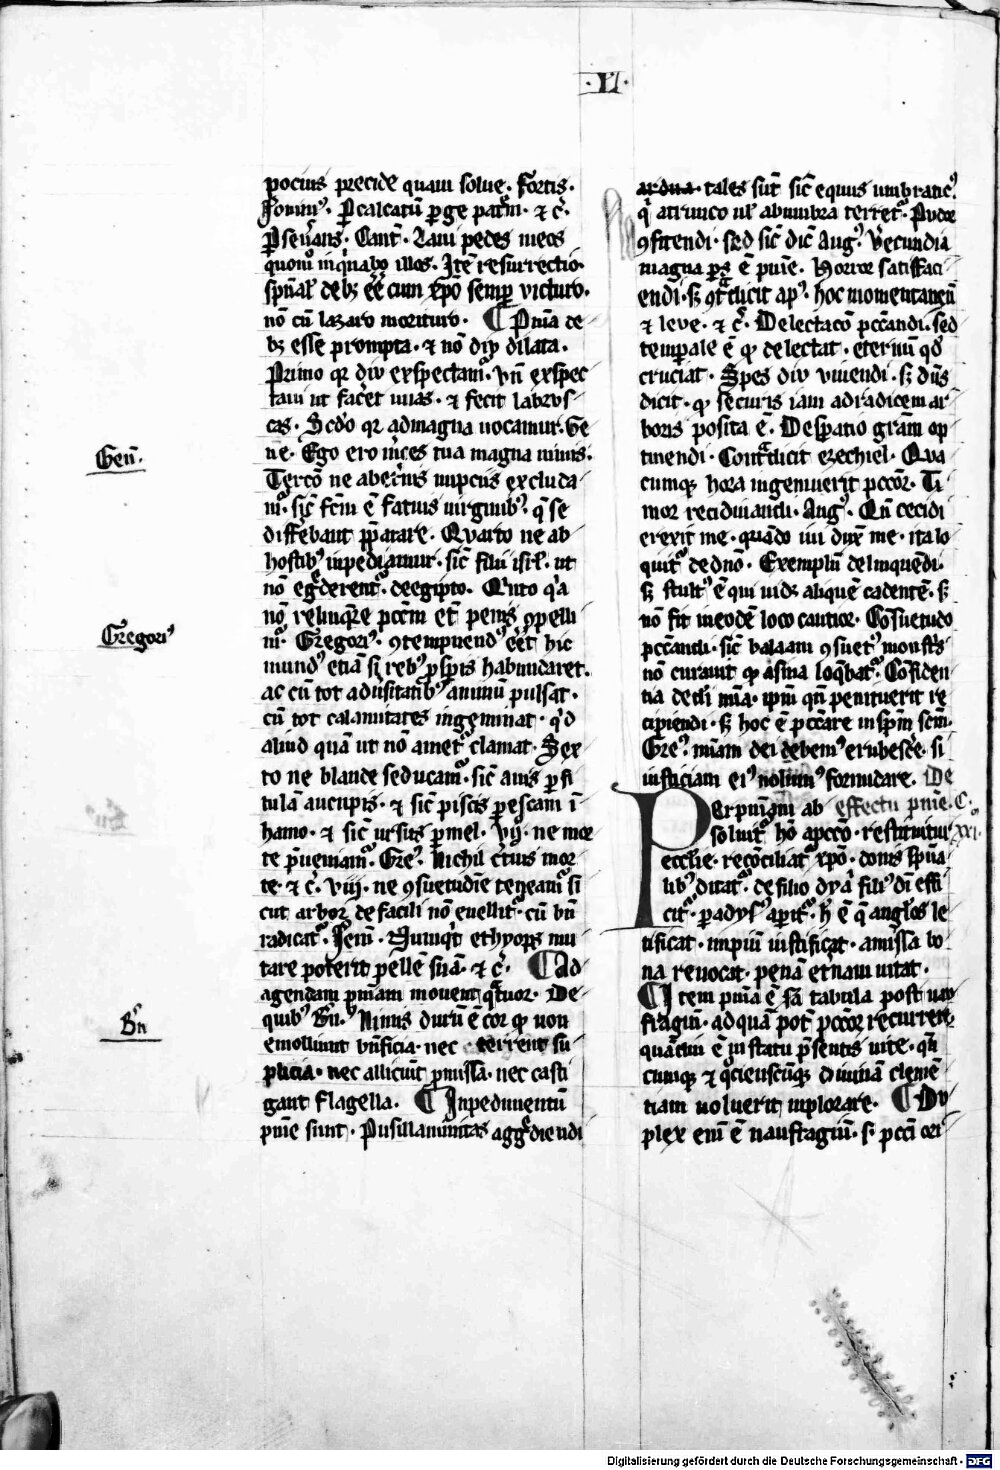 ·VI·
pocius precide quam solue· Fortis·
Iouini᷒· ꝑcalcatū ꝑge patm̄· ⁊ c̄·
ꝑseūans· Cant̄· Laui pedes meos
quom͛ inq̄nabo illos· Itē resurrectio·
spūal̛ debꝫ eē cum xp̄o semꝑ victuro·
nō cū lazaro morituro· ¶ Pnīa de
bꝫ esse prompta· ⁊ nō diu dilata·
Primo qꝛ diu exspectauͥ· vn̄ exspec
taui ut facēt uuas· ⁊ fecit labrus
cas· Scdo͛ qꝛ ad magna uocamur· Ge
ne· Ego ero m̄ces tua magna nimis·
Gen̄·
Tercō ne aberīus nupcīis excluda
mͬ· sic̄ fcm̄ ē fatuis uirginibꝫ· q̄ se
differebant p̄parare· Quarto ne ab
hostibꝫ inpediamur· sic̄ filii isrl̄· ut
nō eg̃derentͬ· de egipto· Qͥnto qͥa
nō relinqͤre pccm̄ et̄ penis ꝯpelli
mͬ· Gregori᷒· ꝯtempnend᷒ eēt hic
Gregori᷒
mund᷒ etiā si rebꝫ ꝓsꝑis habundaret·
ac cū tot adūsitatibꝫ animū pulsat·
cū tot calamitates ingeminat· qͥd
aliud quā ut nō ametͬ clamat· Sex
to ne blande seducamͬ· sic̄ auis ꝑ fi
tulā aucupis· ⁊ sic̄ piscis ꝑ escam ī
hamo· ⁊ sic̄ ursus ꝑ mel· vij· ne mor
te p̄ueniamͬ· Gre᷒· Nichil c̄tius mor
te· ⁊ c̄· viij· ne ꝯsuetudīe teneamͬ si
cut arbor̛ de facili nō euellitͬ· cū bn̄
radicatͬ· Iem̄· Nunqͥt ethyops mu
tare poterit pellē suā· ⁊ c̄· ¶ Ad
agendam pnīam mouent qͣtuor· De
quibꝫ bn̄᷒· Nimis durū ē cor qͦ non
Bn̄
emolliunt bn̄ficia· nec terrent su
plicia· nec alliciūt ꝓmissa· nec casti
gant flagella· ¶ Inpedimentū
pnīe sunt· Pusillanimitas aggͤdiendi
ardua· tales sūt sic̄ equus umbratic᷒
qͥ a trunco ul̛ ab umbra terretͬ· Pudor
ꝯfitendi· sed sic̄ dic̄ Aug᷒· verecundia
magna ps̄ ē pnīe· Horror satisfaci
endi· sꝫ ꝯtͣ dicit ap᷒· hoc momentaneū
⁊ leue· ⁊ c̄· Delectacō pccandi· sed
tempale ē qͦ delectat· eternū qd̄
cruciat· Spes diu viuendi· sꝫ dn̄s
dicit· qͦ securis iam ad radicem ar
boris posita ē· Despatio grām op
tinendi· Contͣdicit ezechiel· Qua
cumqꝫ hora ingemuerit pccōr· Ti
mor recidiuandi· Aug᷒· Qn̄ cecidi
erexit me· quādo iui dux̄ me· ita lo
quitͬ de dn̄o· Exemplū delinquēdi·
sꝫ stult᷒ ē qui uidꝫ aliquē cadentē· sꝫ
nō fit in eodē loco cautior· Cōsuetudo
pccandi· sic̄ balaam ꝯsuet᷒ monstͥs
nō curauit qͦ asina loqͤbatͬ· Cōfiden
tia de dī mīa· ipm̄ qn̄ penituerit re
cipiendi· sꝫ hoc ē pccare in spm̄ scm̄·
Gre᷒· mīam dei debem᷒ erubesc̄e· si
iusticiam ei᷒ nolum᷒ formidare· De
effectu pnīe· C· xxi·
Per pnīam ab
soluitͬ hō a pccō· restituitur
ecclīe· recōciliatͬ xp̄o· donis spūa
libꝫ ditatͬ· de filio dyaͥ fili᷒ dī effi
citͬ· paradys᷒ apitͬ· h̄ ē q̄ anglōs le
tificat· impiū iustificat· amissa bo
na reuocat· penā eternam uitat·
¶ Item pnīa ē scda tabula post nau
fragiū· ad quā pot̄ pccōr recurrere·
quādiu ē in statu p̄sentis uite· qn̄
cumqꝫ ⁊ qͦciescūqꝫ diuinā clemē
tiam uoluerit implorare· ¶ Du
plex eni ē naufragiū· s· pccī ori
Digitalisierung gefördert durch die Deutsche Forschungsgemeinschaft · DFG